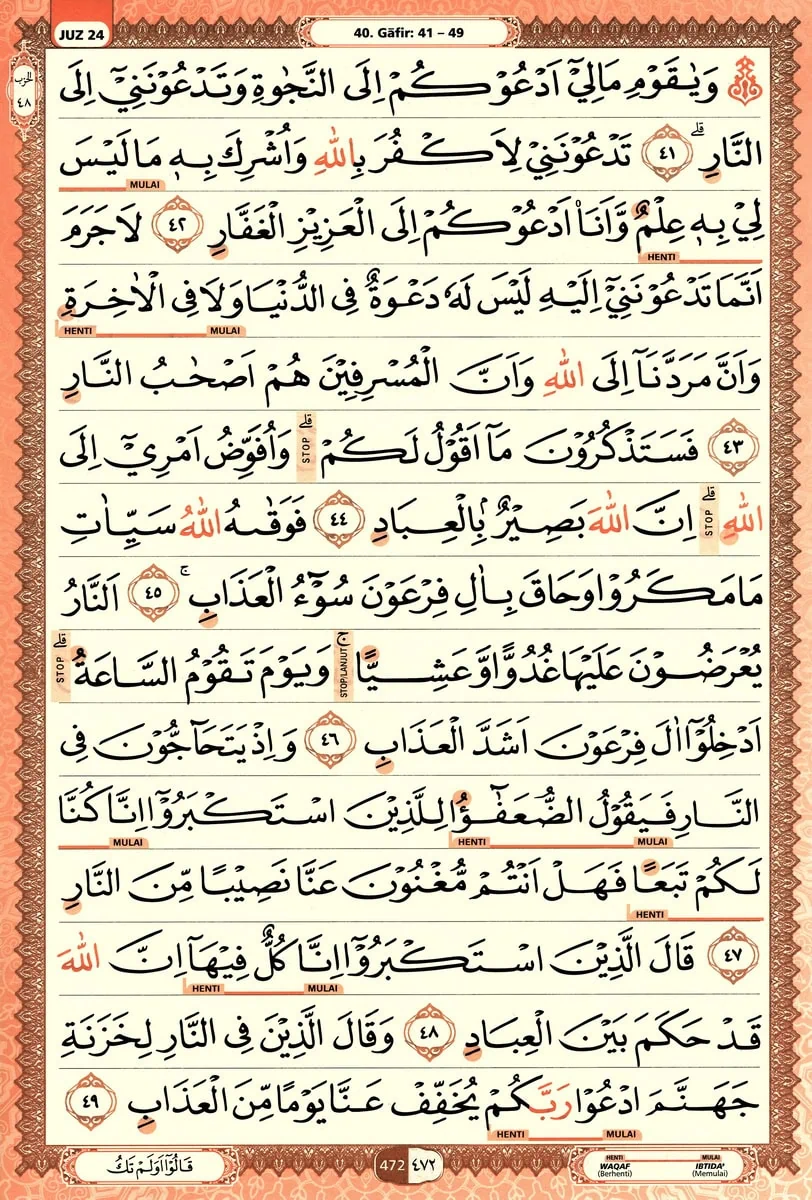 JUZ 24
40. Gāfir: 41 – 49
الحزب
٤٨
وَيٰقَوْمِ مَالِيْٓ اَدْعُوْكُمْ اِلَى النَّجٰوةِ وَتَدْعُوْنَنِيْٓ اِلَى
النَّارِۗ ٤١ تَدْعُوْنَنِيْ لِاَكْفُرَ بِاللّٰهِ وَاُشْرِكَ بِهٖ مَا لَيْسَ
MULAI
لِيْ بِهٖ عِلْمٌ وَّاَنَا۠ اَدْعُوْكُمْ اِلَى الْعَزِيْزِ الْغَفَّارِ ٤٢ لَا جَرَمَ
HENTI
اَنَّمَا تَدْعُوْنَنِيْٓ اِلَيْهِ لَيْسَ لَهٗ دَعْوَةٌ فِى الدُّنْيَا وَلَا فِى الْاٰخِرَةِ
MULAI HENTI
وَاَنَّ مَرَدَّنَآ اِلَى اللّٰهِ وَاَنَّ الْمُسْرِفِيْنَ هُمْ اَصْحٰبُ النَّارِ
٤٣ فَسَتَذْكُرُوْنَ مَآ اَقُوْلُ لَكُمْ ۗ STOP وَاُفَوِّضُ اَمْرِيْٓ اِلَى
اللّٰهِ ۗ STOP اِنَّ اللّٰهَ بَصِيْرٌ ۢبِالْعِبَادِ ٤٤ فَوَقٰىهُ اللّٰهُ سَيِّاٰتِ
مَا مَكَرُوْا وَحَاقَ بِاٰلِ فِرْعَوْنَ سُوْۤءُ الْعَذَابِۚ ٤٥ اَلنَّارُ
يُعْرَضُوْنَ عَلَيْهَا غُدُوًّا وَّعَشِيًّا ۚ STOP/LANJUT وَيَوْمَ تَقُوْمُ السَّاعَةُ ۗ STOP
اَدْخِلُوْٓا اٰلَ فِرْعَوْنَ اَشَدَّ الْعَذَابِ ٤٦ وَاِذْ يَتَحَاۤجُّوْنَ فِى
النَّارِ فَيَقُوْلُ الضُّعَفٰۤؤُا لِلَّذِيْنَ اسْتَكْبَرُوْٓا اِنَّا كُنَّا
MULAI HENTI MULAI
لَكُمْ تَبَعًا فَهَلْ اَنْتُمْ مُّغْنُوْنَ عَنَّا نَصِيْبًا مِّنَ النَّارِ
HENTI
٤٧ قَالَ الَّذِيْنَ اسْتَكْبَرُوْٓا اِنَّا كُلٌّ فِيْهَآ اِنَّ اللّٰهَ
MULAI HENTI
قَدْ حَكَمَ بَيْنَ الْعِبَادِ ٤٨ وَقَالَ الَّذِيْنَ فِى النَّارِ لِخَزَنَةِ
جَهَنَّمَ ادْعُوْا رَبَّكُمْ يُخَفِّفْ عَنَّا يَوْمًا مِّنَ الْعَذَابِ ٤٩
MULAI HENTI
قَالُوْٓا اَوَلَمْ تَكُ
472 ٤٧٢
HENTI MULAI
WAQAF (Berhenti) IBTIDA' (Memulai)